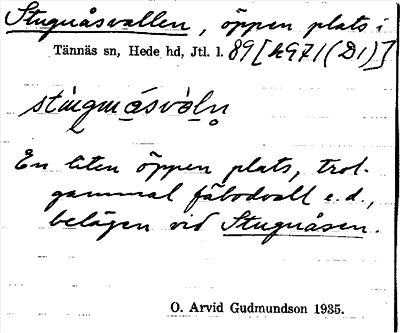 Stuguåsvallen, öppen plats i
Tännäs sn, Hede hd, Jtl. l. 89 [
En liten öppen plats, trol.
gammal fäbodvall e.d.,
belägen vid Stuguåsen.
O. Arvid Gudmundson 1935.